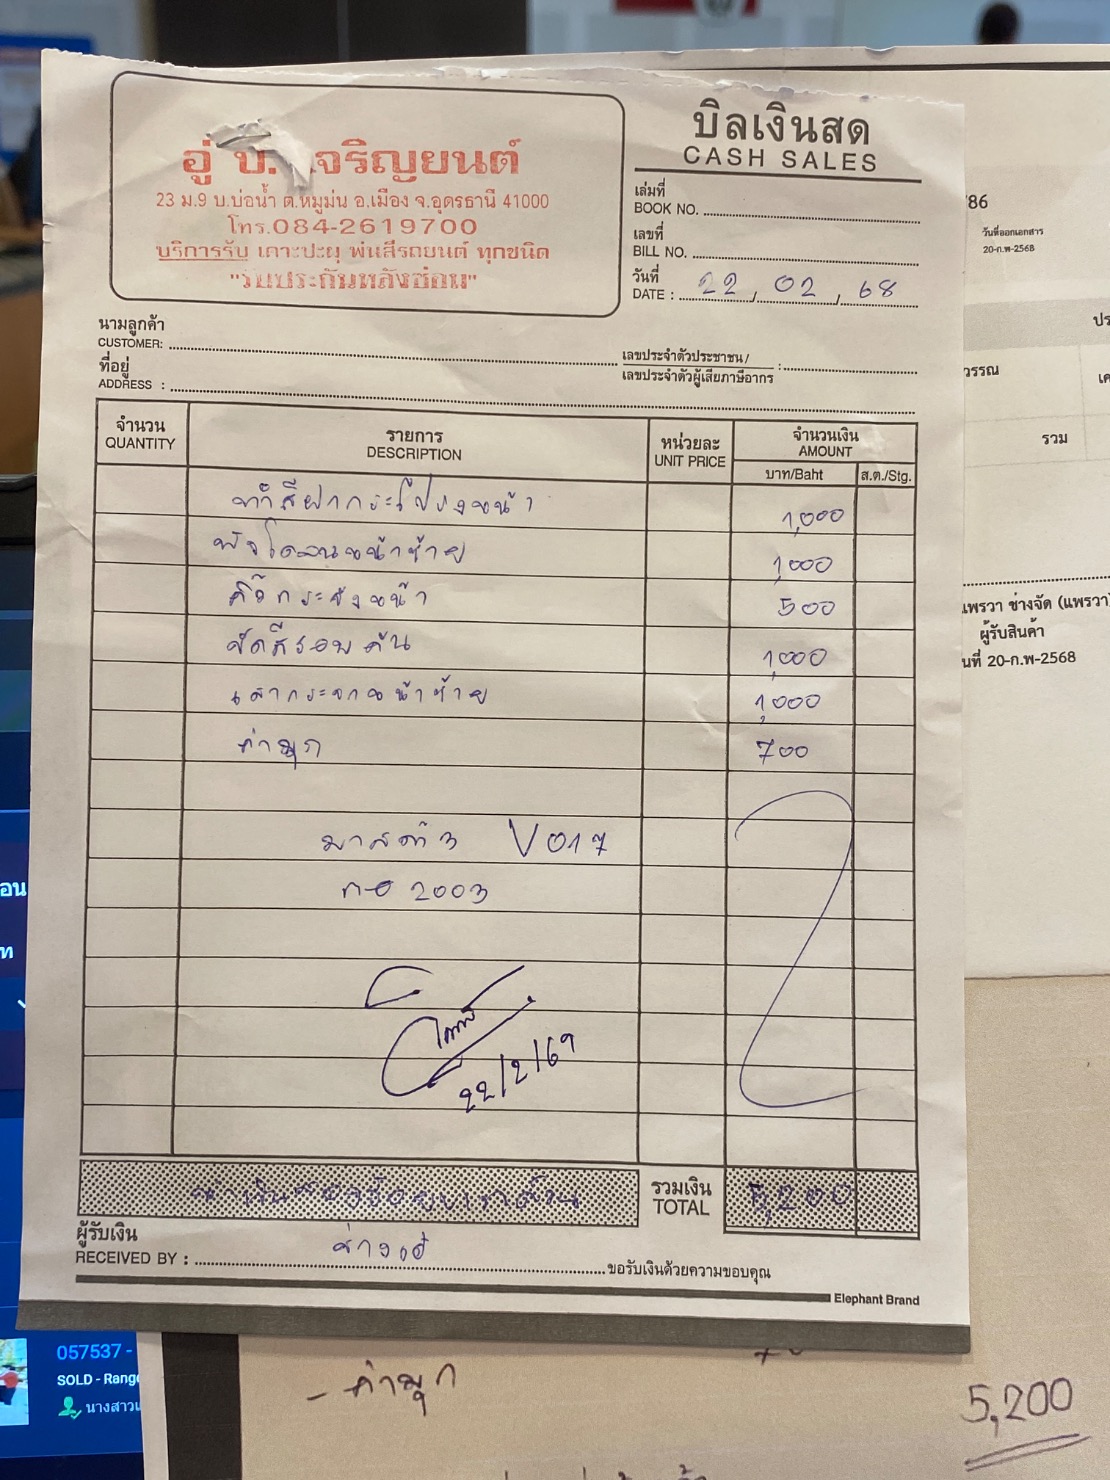 บิลเงินสด
CASH SALES
อู่ บ. จริญยนต์
23 ม.9 บ.บ่อน้ำ ต.หมูม่น อ.เมือง จ.อุดรธานี 41000
โทร.084-2619700
บริการรับ เคาะปะผุ พ่นสีรถยนต์ ทุกชนิด
"รับประกันหลังซ่อม"
เล่มที่
BOOK NO.
เลขที่
BILL NO.
วันที่
DATE : 22, 02, 68
นามลูกค้า
CUSTOMER:
ที่อยู่
ADDRESS :
เลขประจำตัวประชาชน/
เลขประจำตัวผู้เสียภาษีอากร
จำนวน
QUANTITY
รายการ
DESCRIPTION
หน่วยละ
UNIT PRICE
จำนวนเงิน
AMOUNT
บาท/Baht ส.ต./Stg.
ทำสีฝากระโปรงหน้า 1,000
หน้าซ้าย 1,000
กระจังหน้า 500
ขัดสีรอบคัน 1,000
เสากระจกหน้าซ้าย 1,000
ค่ามุก 700
มาสด้า V017
กอ 2003
22/2/69
รวมเงิน
TOTAL
5,200
ผู้รับเงิน
RECEIVED BY :
ขอรับเงินด้วยความขอบคุณ
Elephant Brand
786
วันที่ออกเอกสาร
20-ก.พ-2568
วรรณ
รวม
แพรวา ช่างจัด (แพรวา)
ผู้รับสินค้า
20-ก.พ-2568
057537 -
SOLD - Range
นางสาว
- ค่ามุก
5,200